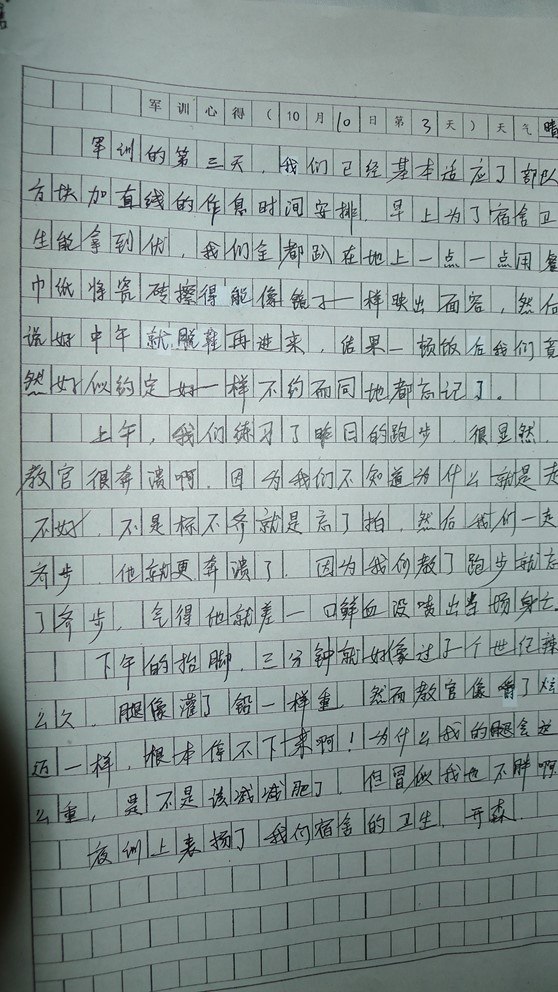 军训心得(10月10日第3天)天气晴
军训的第三天,我们已经基本适应了部队
方块加直线的作息时间安排.早上为了宿舍卫
生能拿到优,我们全都趴在地上一点一点用餐
巾纸将瓷砖擦得能像镜子一样映出面容,然后
说好中午就脱鞋再进来,结果一顿饭后我们竟
然好似约定好一样不约而同地都忘记了.
上午,我们练习了昨日的跑步.很显然,
教官很奔溃啊.因为我们不知道为什么就是走
不好,不是标不齐就是忘了拍.然后我们一走
齐步,他就更奔溃了.因为我们教了跑步就忘
了齐步,气得他就差一口鲜血没喷出当场身亡.
下午的抬脚.三分钟就好像过了个世纪辣
么久.腿像灌了铅一样重.然而教官像了炫
迈一样,根本停不下来啊!为什么我的腿会这
么重,是不是该减减肥了.但冒似我也不胖啊
夜训上表扬了我们宿舍的卫生.开森.